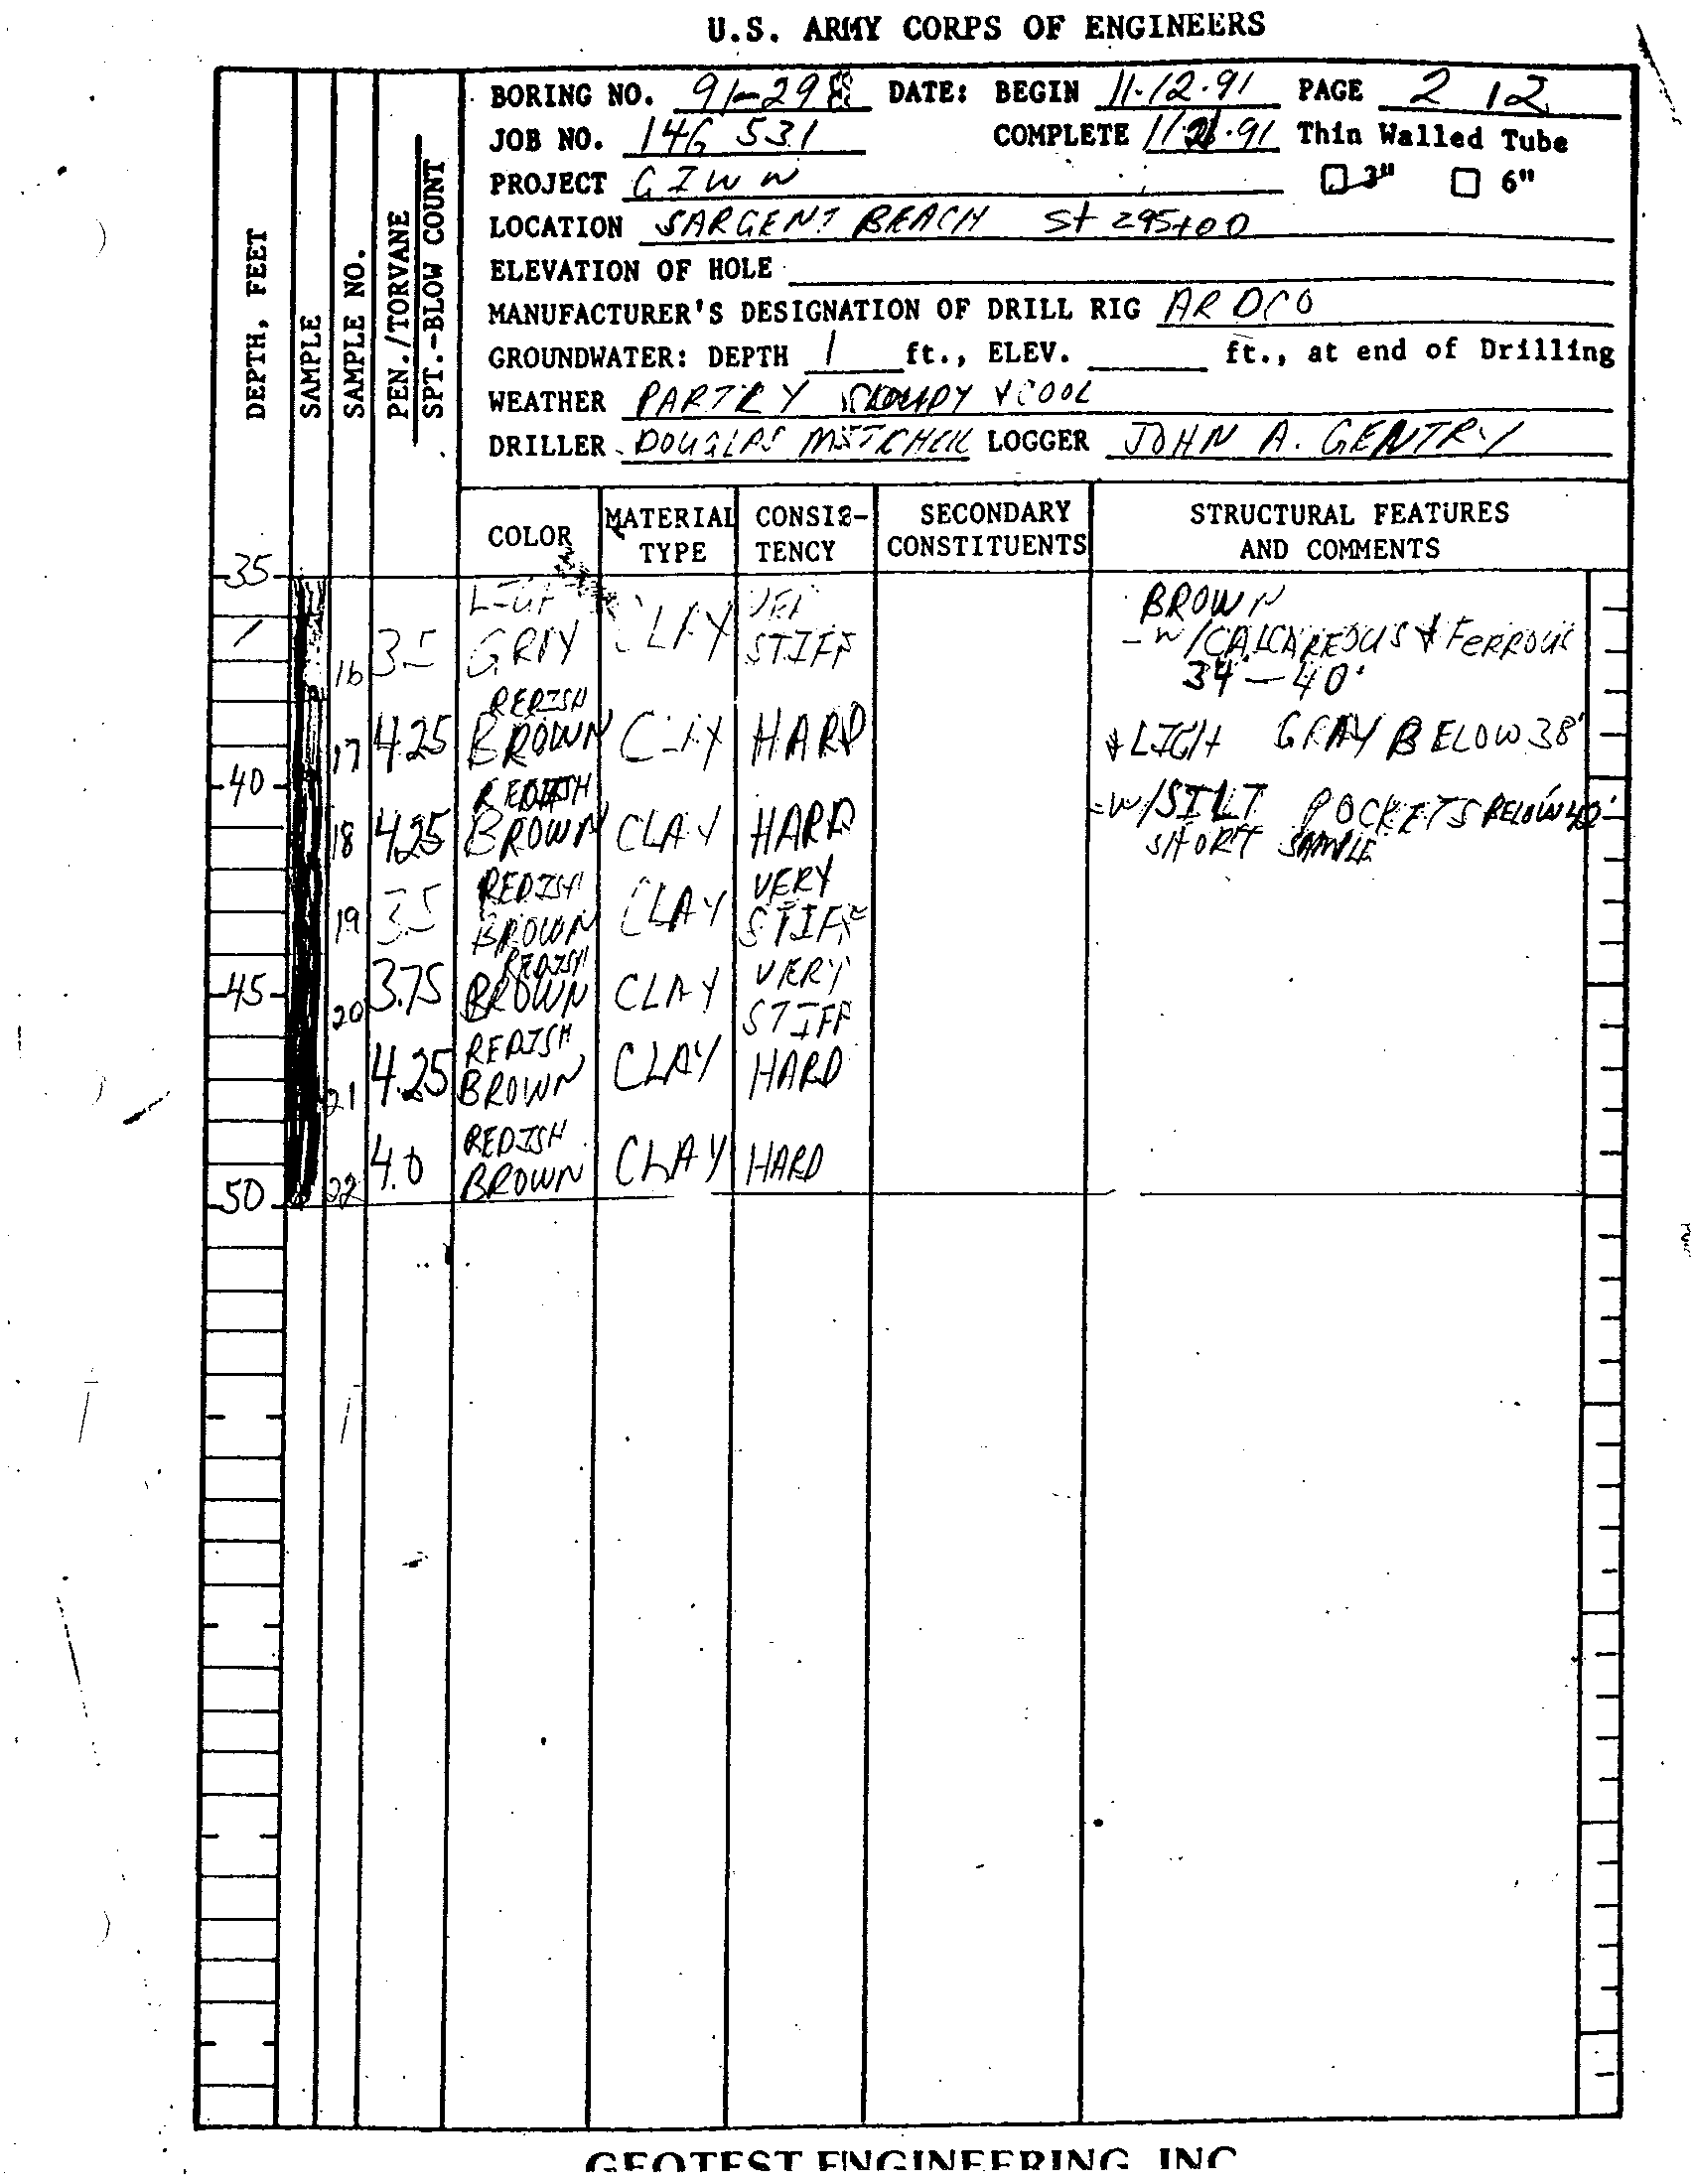 U.S. ARMY CORPS OF ENGINEERS
BORING NO. 91-29 DATE: BEGIN 11.12.91 PAGE 2 12
JOB NO. 14G 531 COMPLETE 11. .91 Thin Walled Tube
PROJECT GIWW 3" 6"
LOCATION SARGENT BEACH St 295+00
ELEVATION OF HOLE
MANUFACTURER'S DESIGNATION OF DRILL RIG ARDCO
GROUNDWATER: DEPTH 1 ft., ELEV. ft., at end of Drilling
WEATHER PARTLY CLOUDY & COOL
DRILLER DOUGLAS MITCHELL LOGGER JOHN A. GENTRY
DEPTH, FEET
SAMPLE
SAMPLE NO.
PEN./TORVANE
SPT.-BLOW COUNT
COLOR MATERIAL TYPE CONSIS-TENCY SECONDARY CONSTITUENTS STRUCTURAL FEATURES AND COMMENTS
35
16 3.5 GRAY CLAY STIFF
BROWN
-W/CALCAREOUS & FERROUS
34'-40'
17 4.25 REDISH BROWN CLAY HARD
& LIGH GRAY BELOW 38'
40
18 4.25 REDISH BROWN CLAY HARD
-W/SILT POCKETS BELOW 40'
SHORT SAMPLE
19 3.5 REDISH BROWN CLAY VERY STIFF
45
20 3.75 REDISH BROWN CLAY VERY STIFF
21 4.25 REDISH BROWN CLAY HARD
50 22 4.0 REDISH BROWN CLAY HARD
GEOTEST ENGINEERING, INC